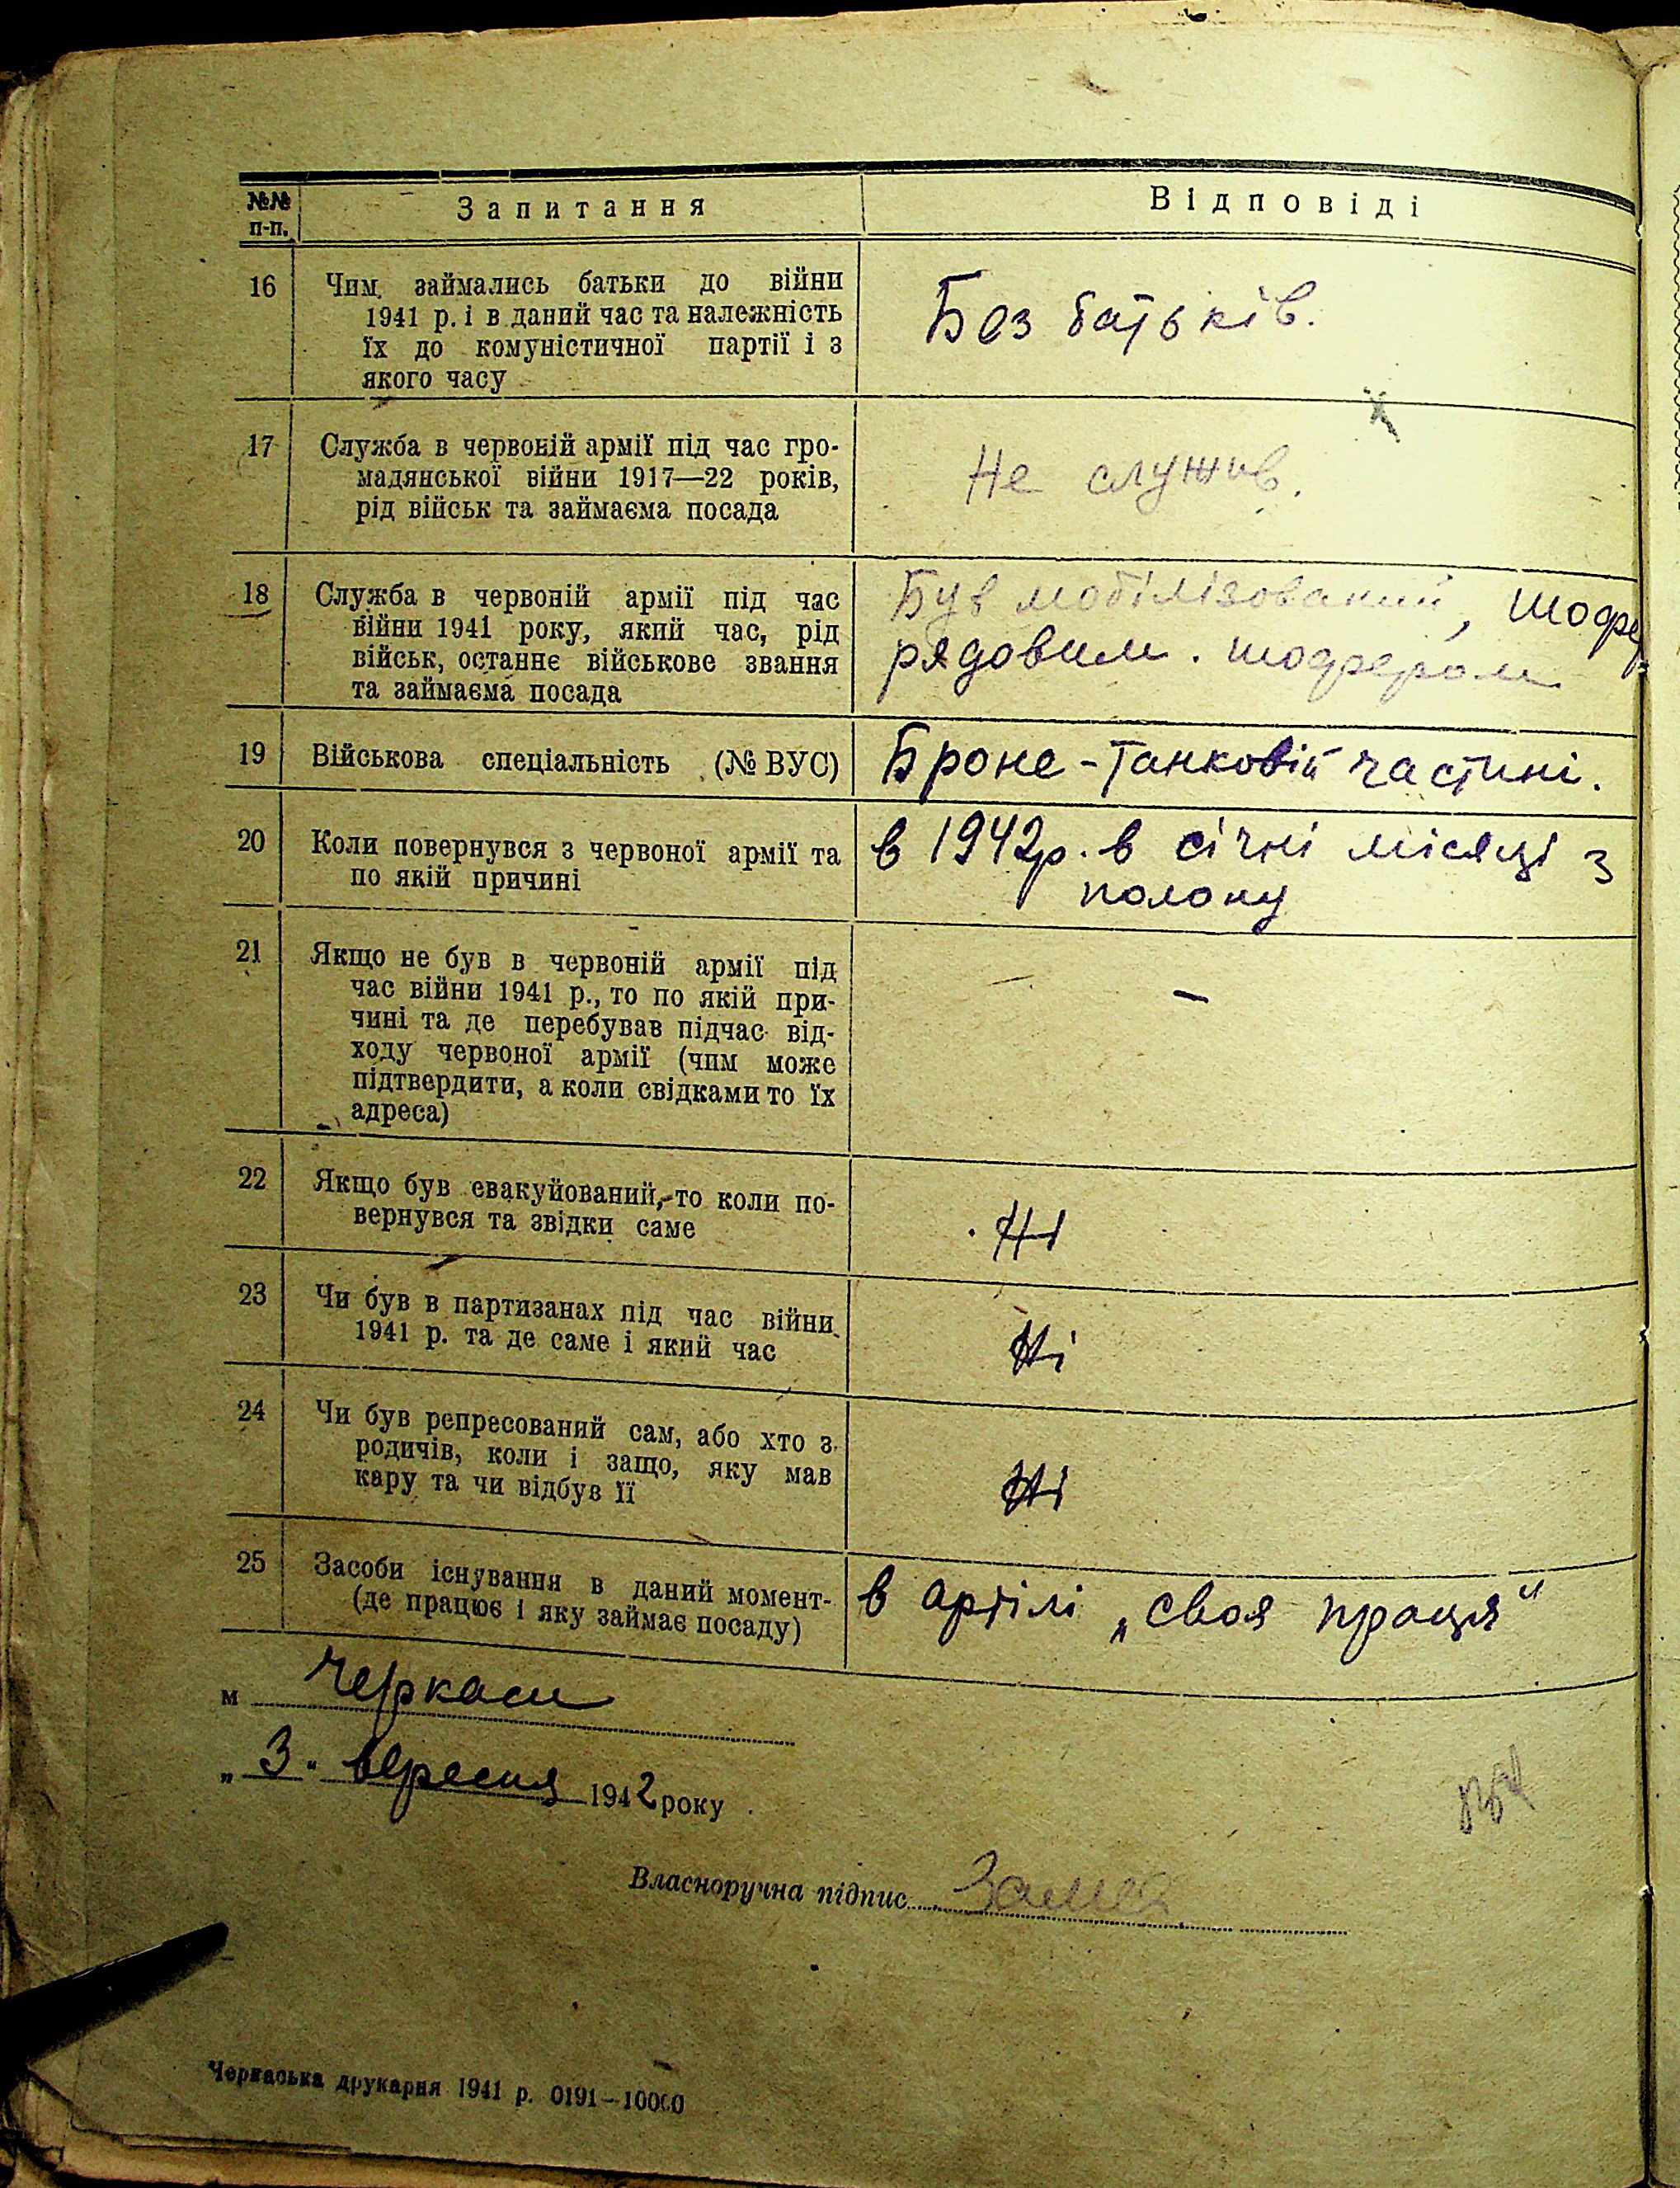 №№ п-п.
Запитання
Відповіді
16
Чим займались батьки до війни
1941 р. і в даний час та належність
їх до комуністичної партії і з
якого часу
Без батьків.
17
Служба в червоній армії під час гро-
мадянської війни 1917—22 років,
рід військ та займаєма посада
Не служив.
18
Служба в червоній армії під час
війни 1941 року, який час, рід
військ, останнє військове звання
та займаєма посада
Був мобілізований,
рядовим. шофером
19
Військова спеціальність (№ ВУС)
Броне-танковій частині.
20
Коли повернувся з червоної армії та
по якій причині
в 1942р. в січні місяці з
полону
21
Якщо не був в червоній армії під
час війни 1941 р., то по якій при-
чині та де перебував підчас від-
ходу червоної армії (чим може
підтвердити, а коли свідками то їх
адреса)
—
22
Якщо був евакуйований, то коли по-
вернувся та звідки саме
Ні
23
Чи був в партизанах під час війни
1941 р. та де саме і який час
Ні
24
Чи був репресований сам, або хто з
родичів, коли і защо, яку мав
кару та чи відбув її
Ні
25
Засоби існування в даний момент-
(де працює і яку займає посаду)
в артілі „своя праця"
м Черкаси
„3" вересня 1942 року
Власноручна підпис
Черкаська друкарня 1941 р. 0191—10000